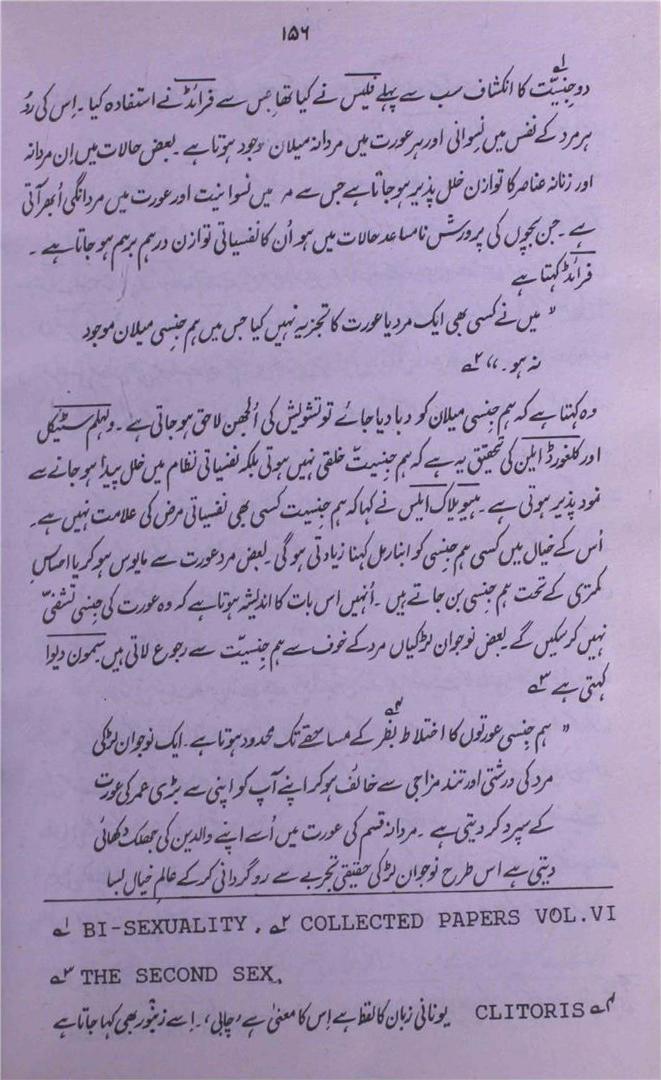 ۱۵۶
دو جنسیّت۱؎ کا انکشاف سب سے پہلے فلیس نے کیا تھا جس سے فرائڈ نے استفادہ کیا ۔ اِس کی رُو
ہر مرد کے نفس میں نِسوانی اور ہر عورت میں مردانہ میلان وجود ہوتا ہے ۔ بعض حالات میں اِن مردانہ
اور زنانہ عناصر کا توازن خلل پذیر ہو جاتا ہے جس سے مرد میں نسوانیت اور عورت میں مردانگی اُبھر آتی
ہے ۔ جن بچوں کی پرورش نامساعد حالات میں ہو اُن کا نفسیاتی توازن درہم برہم ہو جاتا ہے ۔
فرائڈ کہتا ہے
" میں نے کسی بھی ایک مرد یا عورت کا تجزیہ نہیں کیا جس میں ہم جنسی میلان موجود
نہ ہو ۔ " ۲؎
وہ کہتا ہے کہ ہم جنسی میلان کو دبا دیا جائے تو تشویش کی اُلجھن لاحق ہو جاتی ہے ۔ ولہلم سٹیکل
اور کلفورڈ ایلن کی تحقیق یہ ہے کہ ہم جنسیت خلقی نہیں ہوتی بلکہ نفسیاتی نظام میں خلل پیدا ہو جانے سے
نمود پذیر ہوتی ہے ۔ ہیو یلاک ایلس نے کہا کہ ہم جنسیت کسی بھی نفسیاتی مرض کی علامت نہیں ہے ۔
اُس کے خیال میں کسی ہم جنسی کو ابنارمل کہنا زیادتی ہو گی ۔ بعض مرد عورت سے مایوس ہو کر یا احساسِ
کمتری کے تحت ہم جنسی بن جاتے ہیں ۔ اُنہیں اس بات کا اندیشہ ہوتا ہے کہ وہ عورت کی جنسی تشفیّ
نہیں کر سکیں گے ۔ بعض نوجوان لڑکیاں مرد کے خوف سے ہم جنسیّت سے رجوع لاتی ہیں ۔ سیمون دیوا
کہتی ہے ۳؎
" ہم جنسی عورتوں کا اختلاط بظر۴؎ کے مساحقے تک محدود ہوتا ہے ۔ ایک نوجوان لڑکی
مرد کی درشتی اور تند مزاجی سے خائف ہو کر اپنے آپ کو اپنی سے بڑی عمر کی عورت
کے سپرد کر دیتی ہے ۔ مردانہ قسم کی عورت میں اُسے اپنے والدین کی جھلک دکھائی
دیتی ہے اس طرح نوجوان لڑکی حقیقی تجربے سے رو گردانی کر کے عالمِ خیال بسا
۱؎ BI-SEXUALITY, ۲؎ COLLECTED PAPERS VOL.VI
۳؎ THE SECOND SEX.
۴؎ CLITORIS یونانی زبان کا لفظ ہے اِس کا معنیٰ ہے ' چابی ' ۔ اِسے زنبُور بھی کہا جاتا ہے